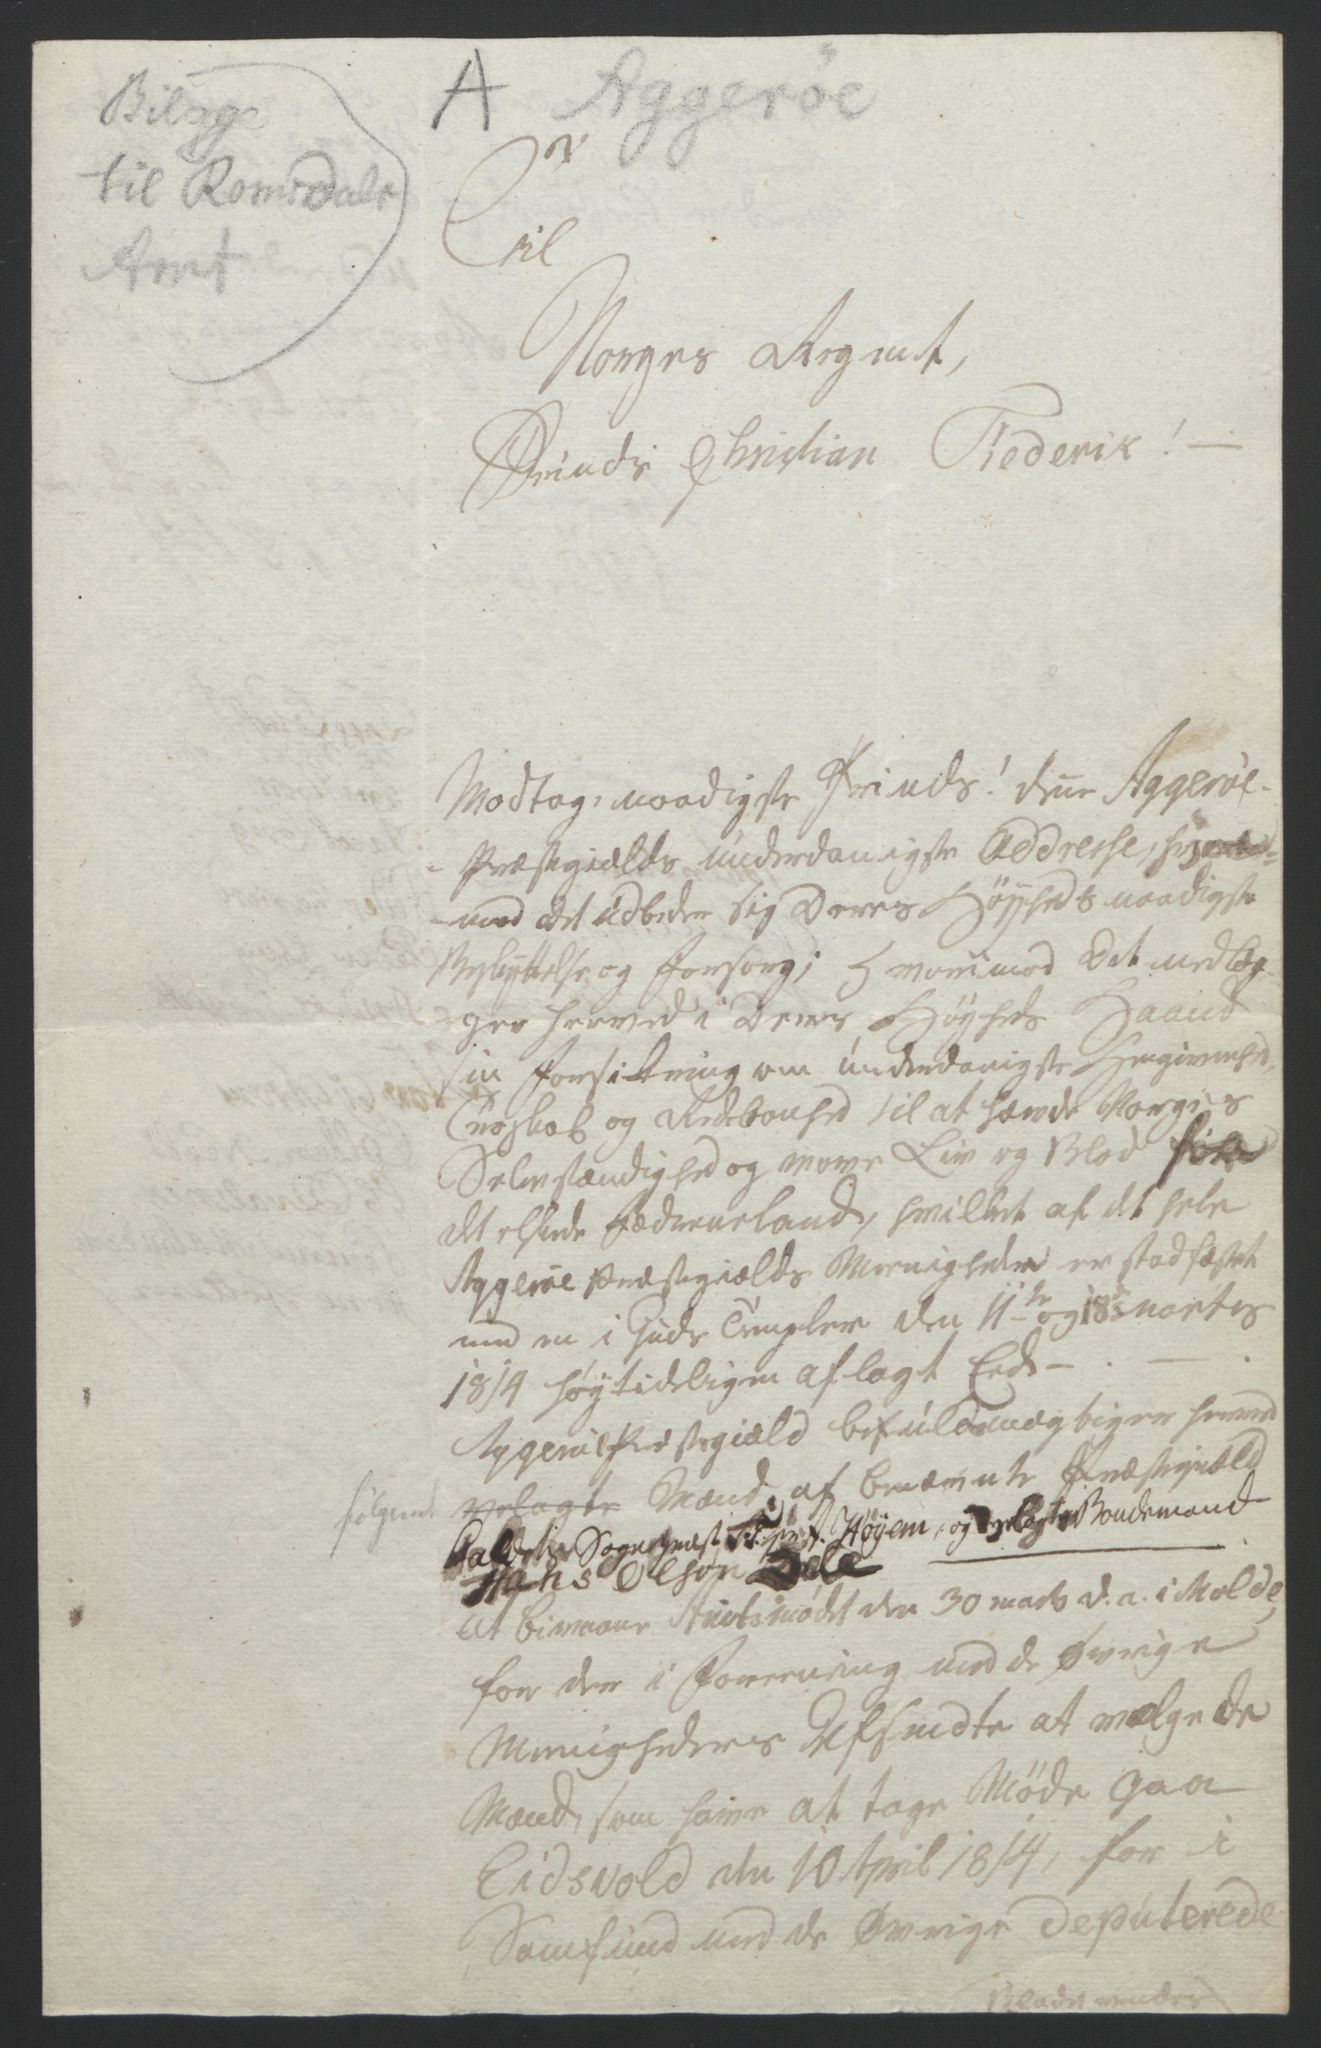 Bilage
til Romsdals
Amt
A Aggerøe
Til
Norges Regent,
Prinds Christian Frederik! —
Modtag, naadigste Prinds! denne Aggerøe-
Præstegields underdanigste Addresse,
med det udbeder sig Deres Høyheds naadigste
Beskyttelse og Forsorg; hvorimod det nedlæg-
ger herved i Deres Høyheds Haand
sin Forsikring om underdanigste Hengivenhed,
Troskab og Redebonhed til at hævde Norges
Selvstændighed og vove Liv og Blod for
det elskede Fædreneland, hvilket af det hele
Aggerøe Præstegields Menigheder er stadfæstet
med en i Guds Templer den 11te og 18de Martss
1814 høytideligen aflagt Eed — . —
Aggerøe Præstegield befuldmægtiger herved
følgende velagte Mænd, af benævnte Præstegield
Sognepræst Høyem, og velagte Bondemand
Hans Olsøn
at bivaane Amtsmødet den 30 marts d. a. i Molde,
for der i Forening med de øvrige
Menigheders Afsendte at vælge de
Mænd, som have at tage Møde paa
Eidsvold den 10 April 1814, for i
Samfund med de øvrige Deputerede
Bladet vendes